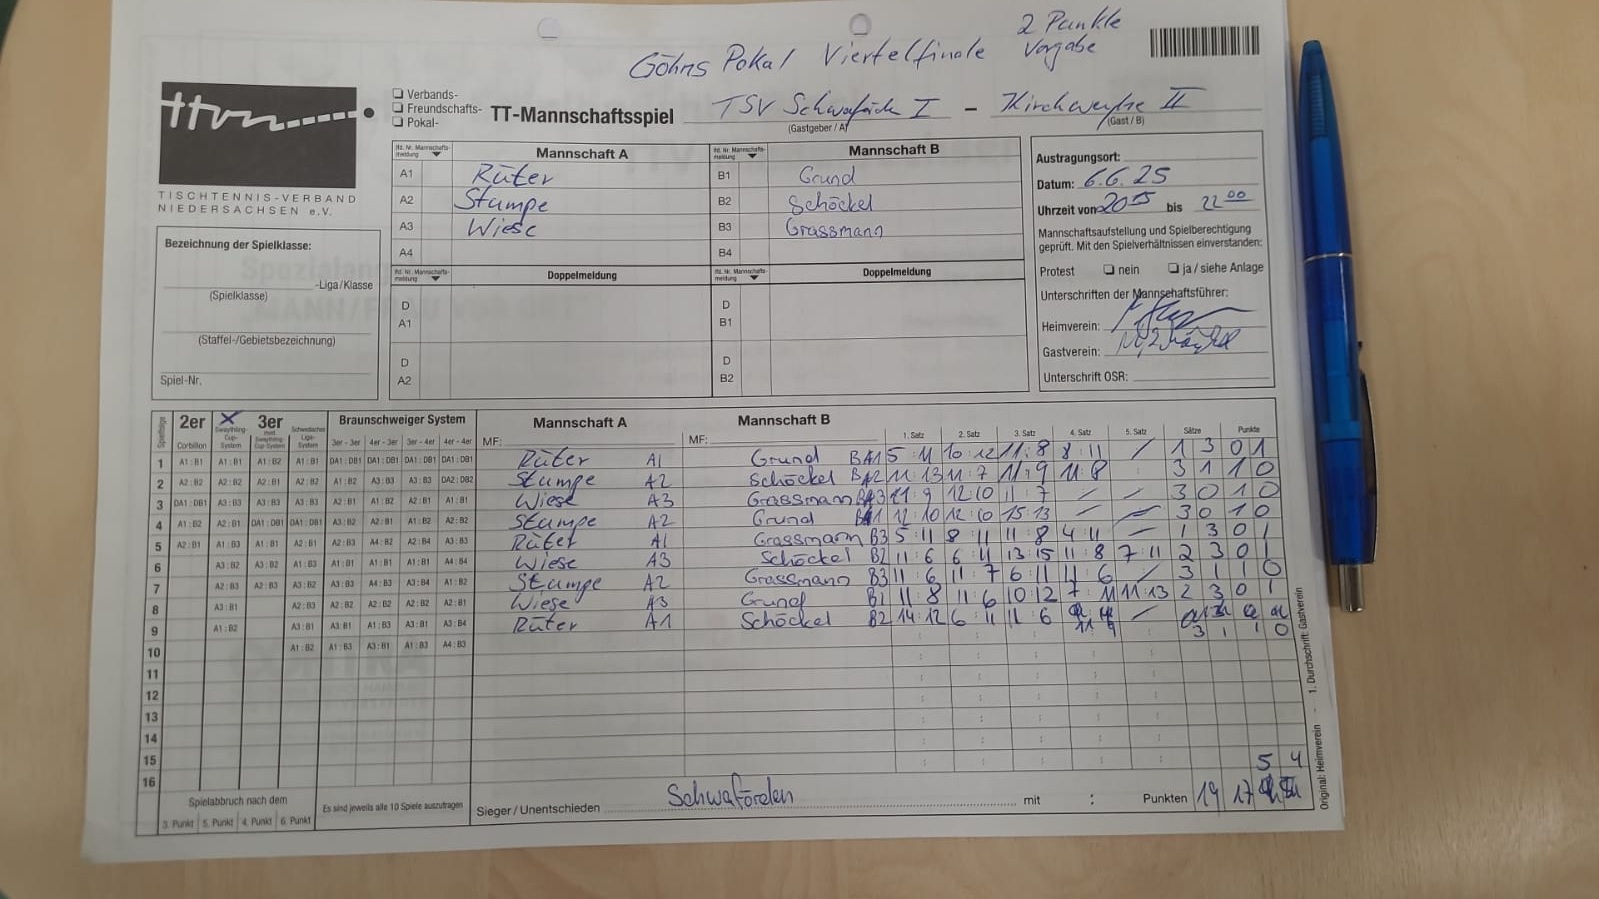 2 Punkte
Göhrs Pokal Viertelfinale Vorgabe
ttvn
TISCHTENNIS-VERBAND
NIEDERSACHSEN e.V.
Verbands-
Freundschafts-
Pokal-
TT-Mannschaftsspiel TSV Schwaförde I - Kirchweyhe II
(Gastgeber / A) (Gast / B)
lfd. Nr. Mannschafts-meldung Mannschaft A lfd. Nr. Mannschafts-meldung Mannschaft B
A1 Rüter B1 Grund
A2 Stumpe B2 Schöckel
A3 Wiese B3 Grassmann
A4 B4
lfd. Nr. Mannschafts-meldung Doppelmeldung lfd. Nr. Mannschafts-meldung Doppelmeldung
D A1 D B1
D A2 D B2
Austragungsort:
Datum: 6.6.25
Uhrzeit von 20 05 bis 22 00
Mannschaftsaufstellung und Spielberechtigung
geprüft. Mit den Spielverhältnissen einverstanden:
Protest nein ja / siehe Anlage
Unterschriften der Mannschaftsführer:
Heimverein:
Gastverein:
Unterschrift OSR:
Bezeichnung der Spielklasse:
-Liga/Klasse
(Spielklasse)
(Staffel-/Gebietsbezeichnung)
Spiel-Nr.
Spielfolge 2er X 3er Braunschweiger System Mannschaft A Mannschaft B
Corbillon Swaythling-Cup-System Schwedisches Liga-System 3er - 3er 4er - 3er 3er - 4er 4er - 4er MF: MF: 1. Satz 2. Satz 3. Satz 4. Satz 5. Satz Sätze Punkte
1 A1 : B1 A1 : B1 A1 : B2 A1 : B1 DA1 : DB1 DA1 : DB1 DA1 : DB1 DA1 : DB1 Rüter A1 Grund B1 5 : 11 10 : 12 11 : 8 8 : 11 / 1 3 0 1
2 A2 : B2 A2 : B2 A2 : B1 A2 : B2 A1 : B2 A3 : B3 A3 : B3 DA2 : DB2 Stumpe A2 Schöckel B2 11 : 13 11 : 7 11 : 9 11 : 8 : 3 1 1 0
3 DA1 : DB1 A3 : B3 A3 : B3 A3 : B3 A2 : B1 A1 : B2 A2 : B1 A1 : B1 Wiese A3 Grassmann B3 11 : 9 12 : 10 11 : 7 / / 3 0 1 0
4 A1 : B2 A2 : B1 DA1 : DB1 DA1 : DB1 A3 : B2 A2 : B1 A1 : B2 A2 : B2 Stumpe A2 Grund B1 12 : 10 12 : 10 15 : 13 / / 3 0 1 0
5 A2 : B1 A1 : B3 A1 : B1 A2 : B1 A2 : B3 A4 : B2 A2 : B4 A3 : B3 Rüter A1 Grassmann B3 5 : 11 8 : 11 11 : 8 4 : 11 - 1 3 0 1
6 A3 : B2 A3 : B2 A1 : B3 A1 : B1 A1 : B1 A1 : B1 A4 : B4 Wiese A3 Schöckel B2 11 : 6 6 : 11 13 : 15 11 : 8 7 : 11 2 3 0 1
7 A2 : B3 A2 : B3 A3 : B2 A3 : B3 A4 : B3 A3 : B4 A1 : B2 Stumpe A2 Grassmann B3 11 : 6 11 : 7 6 : 11 11 : 6 / 3 1 1 0
8 A3 : B1 A2 : B3 A2 : B2 A2 : B2 A2 : B2 A2 : B1 Wiese A3 Grund B1 11 : 8 11 : 6 10 : 12 7 : 11 11 : 13 2 3 0 1
9 A1 : B2 A3 : B1 A3 : B1 A1 : B3 A3 : B1 A3 : B4 Rüter A1 Schöckel B2 14 : 12 6 : 11 11 : 6 11 9 / 3 1 1 0
10 A1 : B2 A1 : B3 A3 : B1 A1 : B3 A4 : B3
11
12
13
14
15 5 4
16
Spielabbruch nach dem
3. Punkt 5. Punkt 4. Punkt 6. Punkt
Es sind jeweils alle 10 Spiele auszutragen
Sieger / Unentschieden Schwaförden mit : Punkten 19 17
Original: Heimverein - 1. Durchschrift: Gastverein